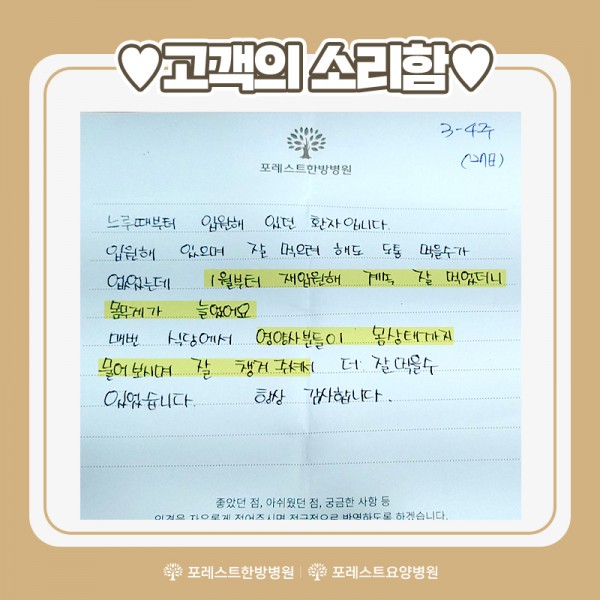 ♥고객의 소리함♥
3-4주
포레스트한방병원
느루때부터 입원해 있던 환자입니다.
입원해 있으며 잘 먹으려 해도 도통 먹을수가
없었는데 1월부터 재입원해 계속 잘 먹었더니
몸무게가 늘었어요
매번 식당에서 영양사분들이 몸상태까지
물어보시며 잘 챙겨 주셔서 더 잘먹을수
있었습니다. 항상 감사합니다.
좋았던 점, 아쉬웠던 점, 궁금한 사항 등
의견을 자유롭게 적어주시면 적극적으로 반영하도록 하겠습니다.
포레스트한방병원 | 포레스트요양병원